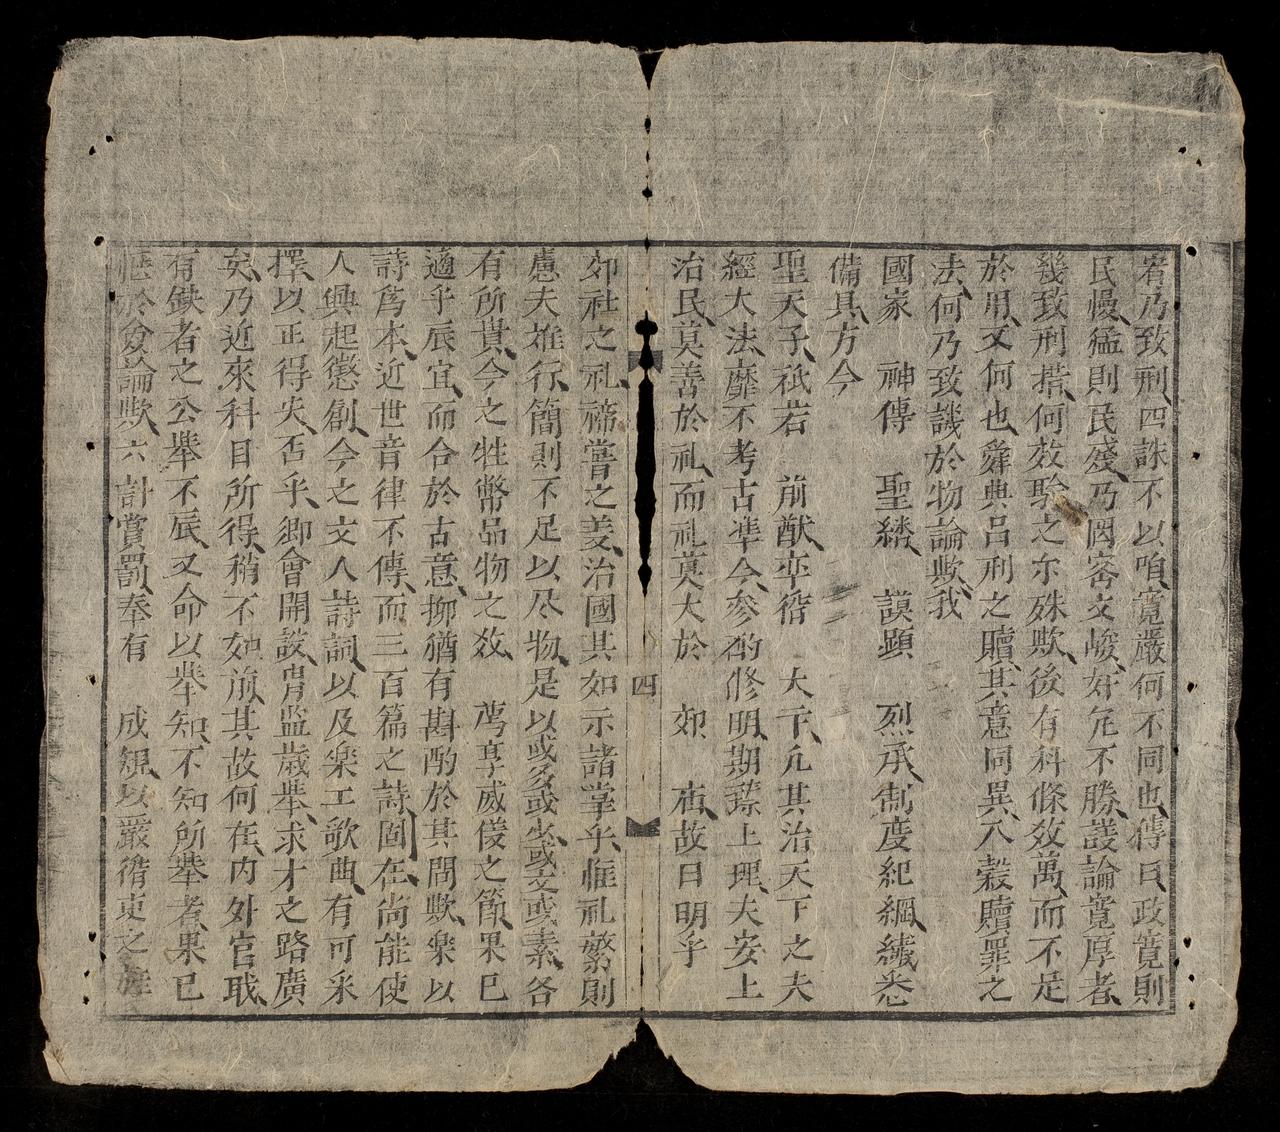 宥乃致刑四誅不以嗔寬嚴何不同也傳曰政寬則
民慢猛則民殘乃因密文峻奸宄不勝議論寬厚者
幾致刑措何效騐之尔殊欤後有科條效萬而不足
於用又何也舜典吕刑之贖其意同異入穀贖罪之
法何乃致譏於物論欤我
國家 神傳 聖繼 謨顯 烈承制度紀綱纎悉
備具方今
聖天子祇若 前猷率循 大卞凢其治天下之夫
經大法靡不考古準今参酌修明期臻上理夫安上
治民莫善於礼而礼莫大於 郊 庙故曰明乎
四
郊社之礼禘嘗之義治國其如示諸掌乎惟礼繁則
慮夫难行簡則不足以尽物是以或多或少或文或素各
有所貴今之牲幣品物之效 薦享威儀之節果已
適乎辰宜而合於古意抑猶有斟酌於其間欤楽以
詩爲本近世音律不傳而三百篇之詩固在尚能使
人興起懲創今之文人詩詞以及楽工歌曲有可釆
擇以正得失否乎鄉會開設胄监歲舉求才之路廣
矣乃近來科目所得稍不如前其故何在内外官职
有缺者之公舉不辰又命以举知不知所举者果已
愜於僉論欤六計賞罰奉有 成規以嚴循吏之